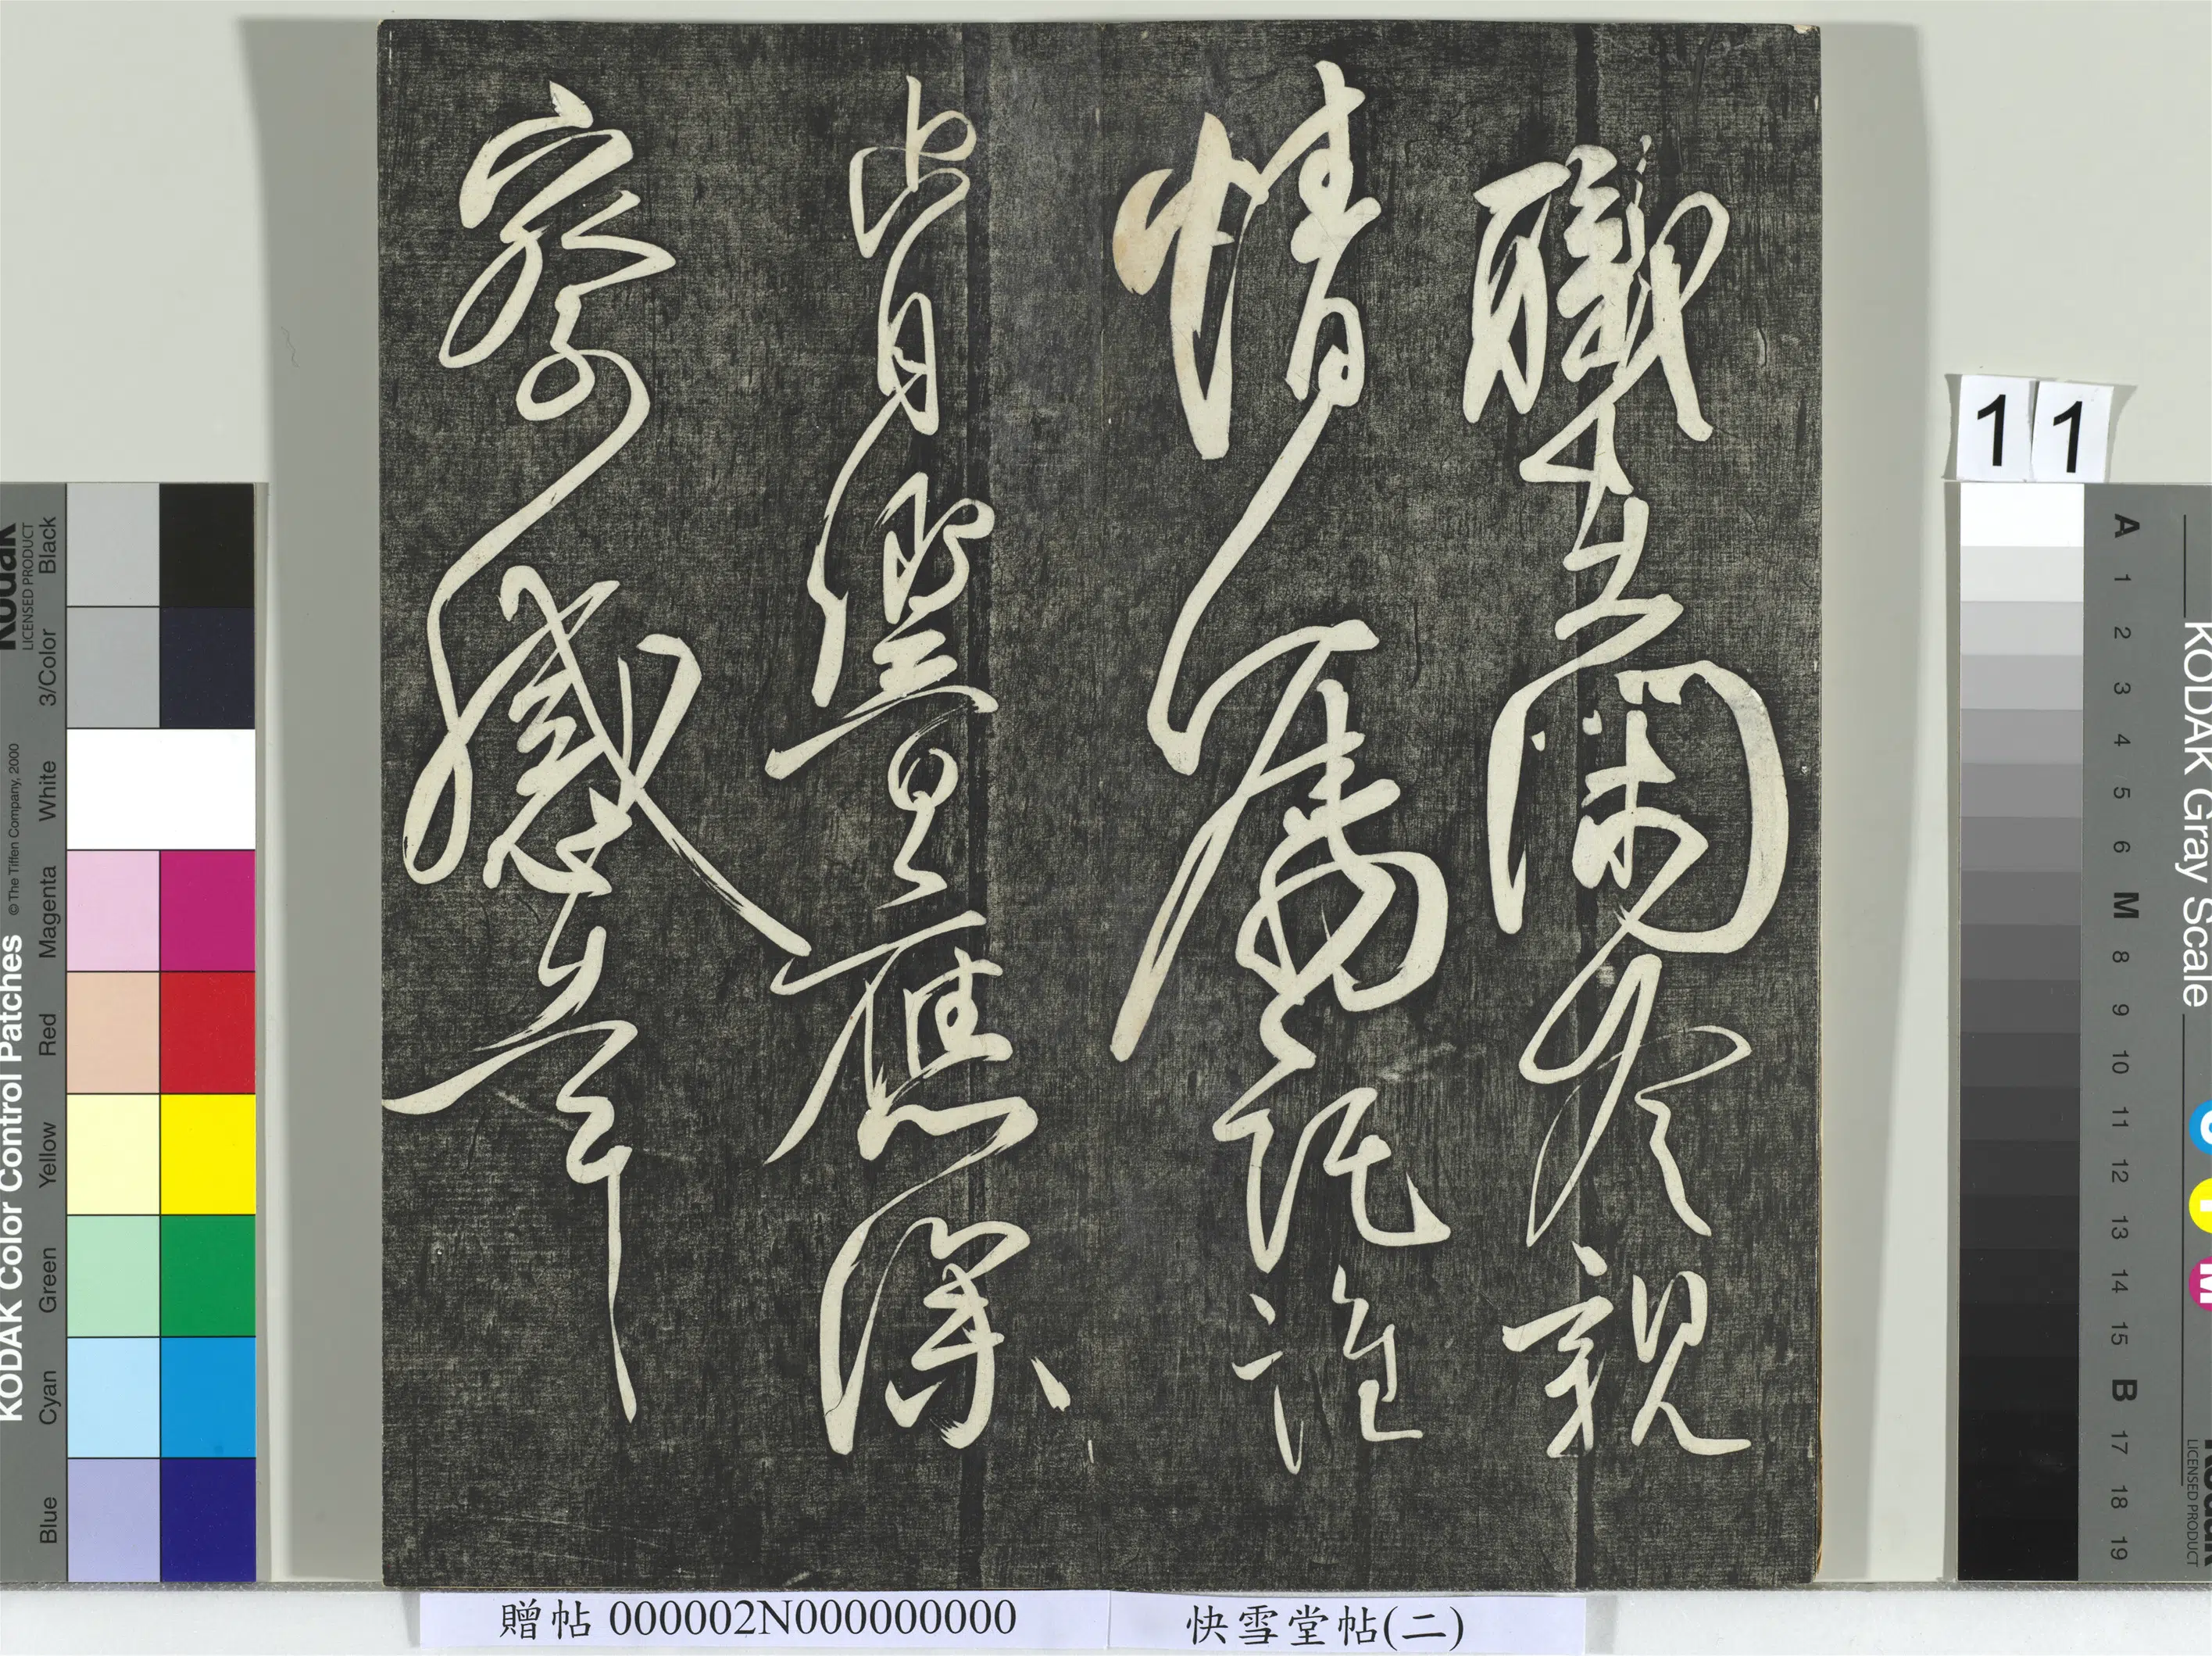 職在閑冷親
情屬託誰
肯響應深
察感幸
11
贈帖 000002N000000000
快雪堂帖(二)
KODAK Color Control Patches
© The Tiffen Company, 2000
Kodak
LICENSED PRODUCT
Blue Cyan Green Yellow Red Magenta White 3/Color Black
KODAK Gray Scale
A 1 2 3 4 5 6 M 8 9 10 11 12 13 14 15 B 17 18 19
C Y M
Kodak
LICENSED PRODUCT